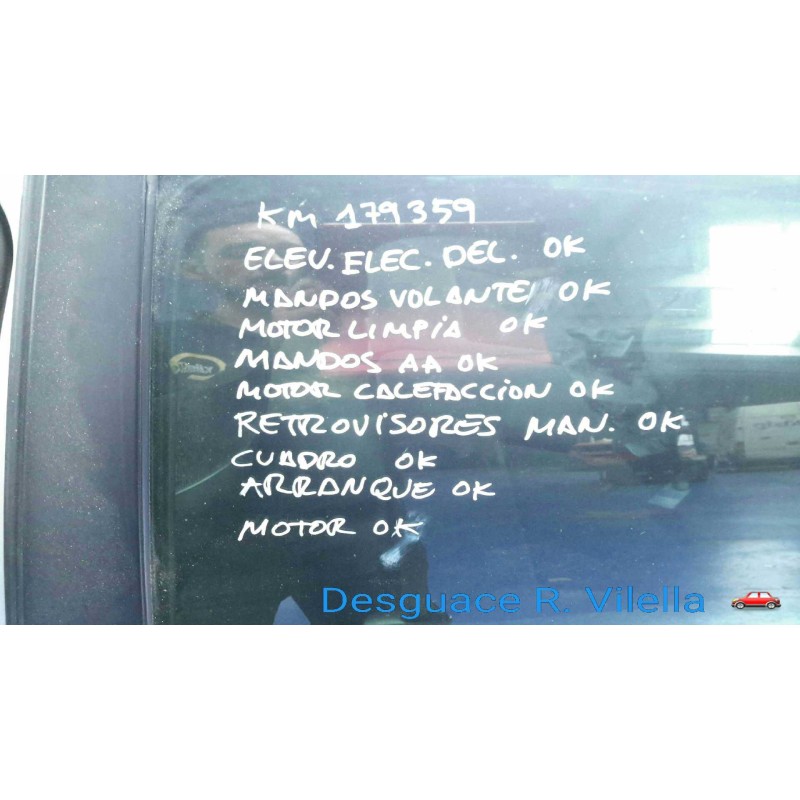 KM 179359
ELEV. ELEC. DEL. OK
MANDOS VOLANTE OK
MOTOR LIMPIA OK
MANDOS AA OK
MOTOR CALEFACCION OK
RETROVISORES MAN. OK
CUADRO OK
ARRANQUE OK
MOTOR OK
Desguace R. Vilella